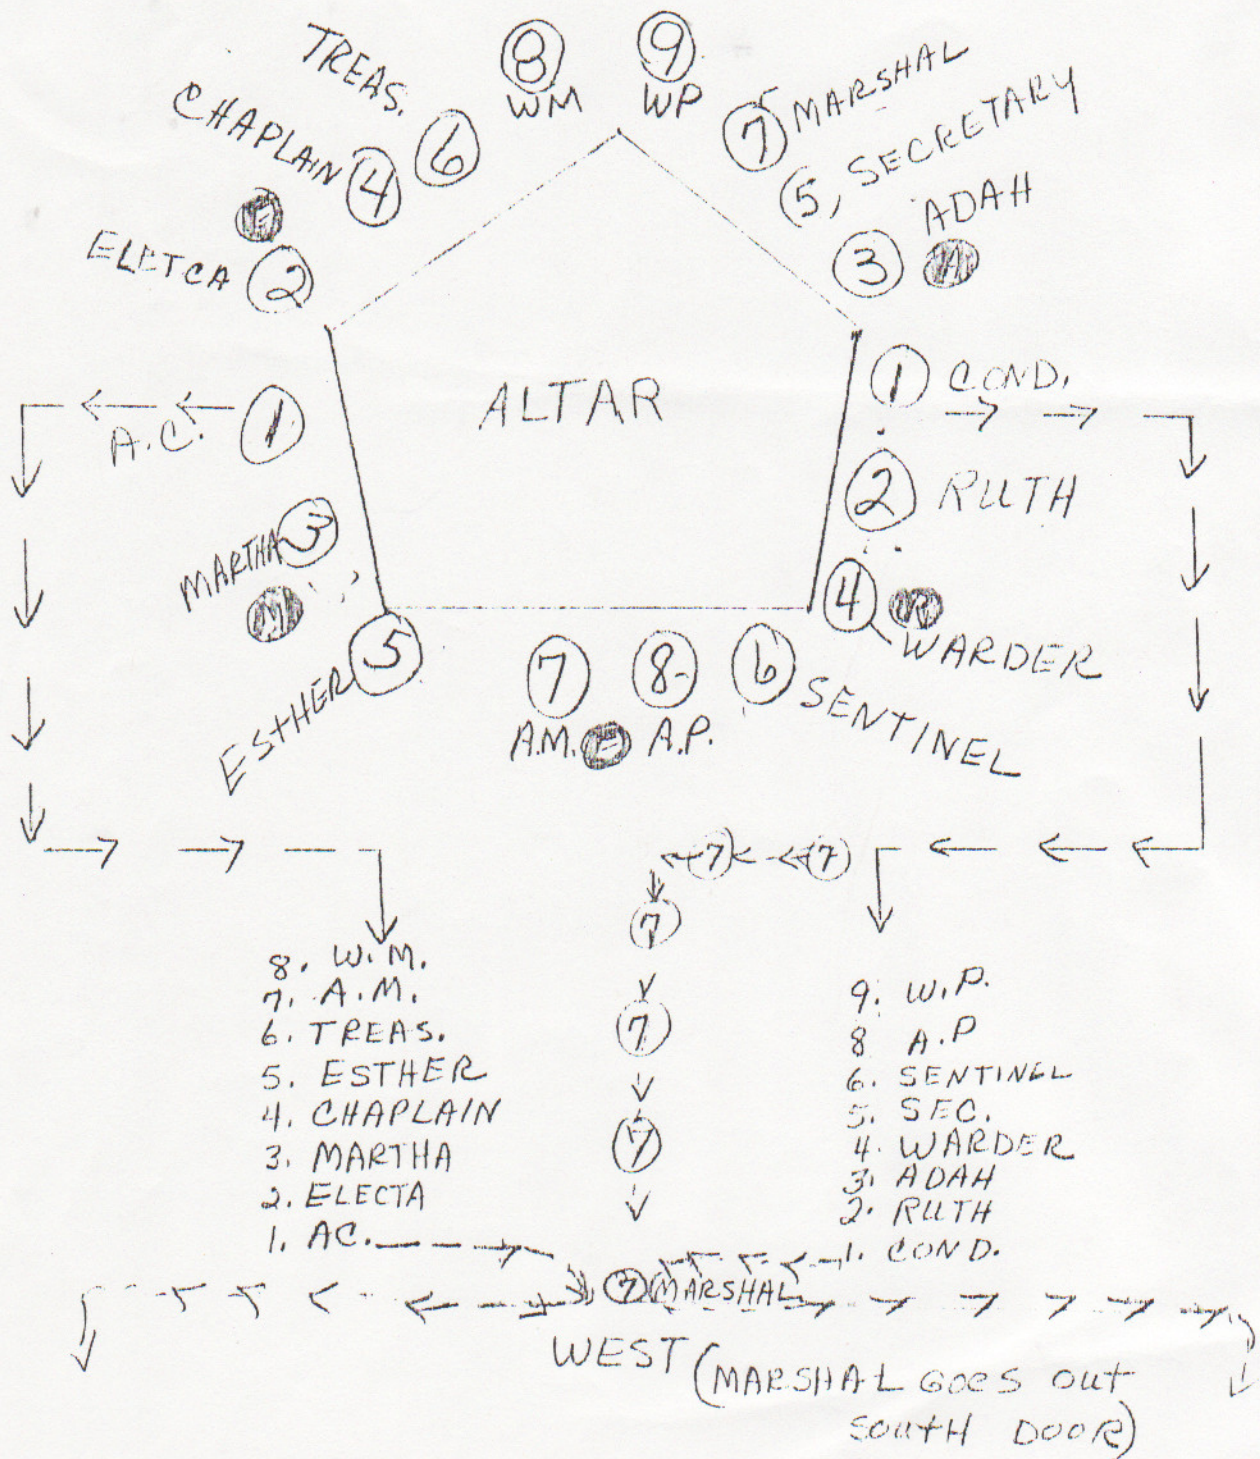 TREAS.
8
9
WM
WP
6
7 MARSHAL
CHAPLAIN 4
5, SECRETARY
E
ADAH
ELETCA 2
3
A
ALTAR
1 COND.
A.C. 1
2 RUTH
MARTHA 3
M
4 R
WARDER
ESTHER 5
7
8
6 SENTINEL
A.M. E A.P.
7
7
7
7
7
8. W.M.
7. A.M.
6. TREAS.
5. ESTHER
4. CHAPLAIN
3. MARTHA
2. ELECTA
1. AC.
9. W.P.
8 A.P
6. SENTINEL
5. SEC.
4. WARDER
3. ADAH
2. RUTH
1. COND.
7 MARSHAL
WEST (MARSHAL GOES OUT
SOUTH DOOR)